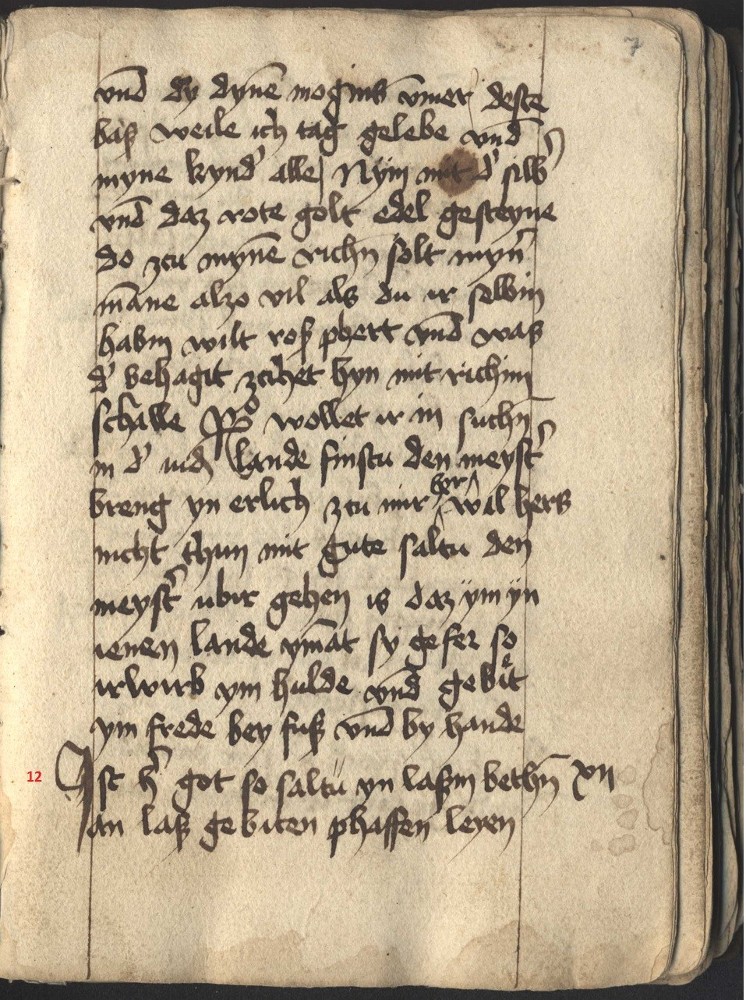 7
vnd dy dyne̅ mogin̅s v̅mer deste
bas weile ich tag gelebe vnd
myne kynd' alle Nÿm mit d' silb'
vnd daz rote golt edel gesteyne
do zcu myne̅ richn̅ solt myn̅
ma̅ne alzo vil als du ir selbin
habin wilt ros phert vnd was
d' behagit zcihet hyn mit richim
schalle wollet ir in suchn̅
in d' iudn lande finstu den meyst'
breng yn erlich zcu mir her wil hers
nicht thun mit gute saltu den
meyst' ubir gehen is daz ÿm ÿn
ienen lande yma̅t sy gefer so
irwirb ym hulde vnd gebiet
ym frede bey fus vnd by hande
12 Ist h' got so saltü yn lasin bethn̅ xii
an las gebiten phaffen leyen